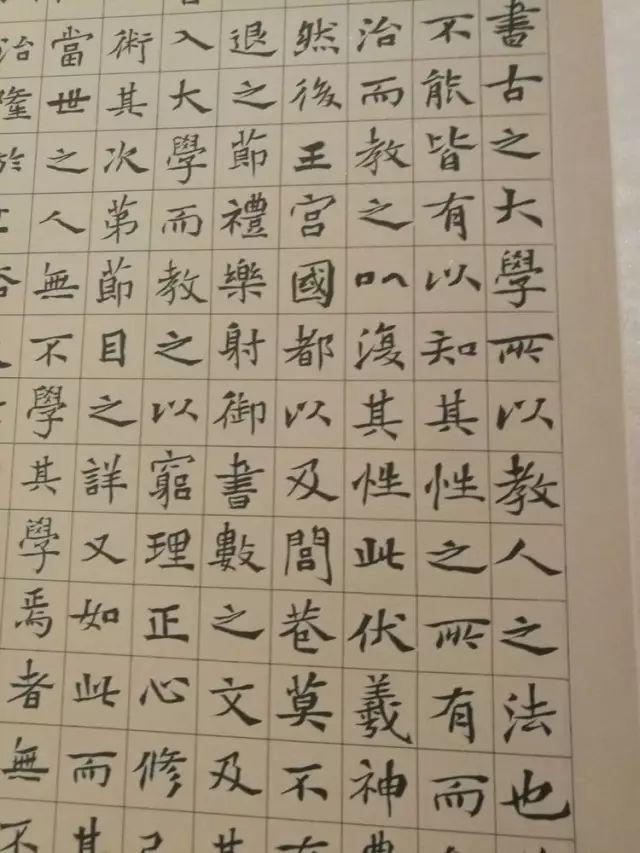 書古之大學所以教人之法也
不能皆有以知其性之所有而
治而教之以復其性此伏羲神
然後王宮國都以及閭巷莫不有
退之節禮樂射御書數之文及其
入大學而教之以窮理正心修己
術其次第節目之詳又如此而其
當世之人無不學其學焉者無不
治隆於